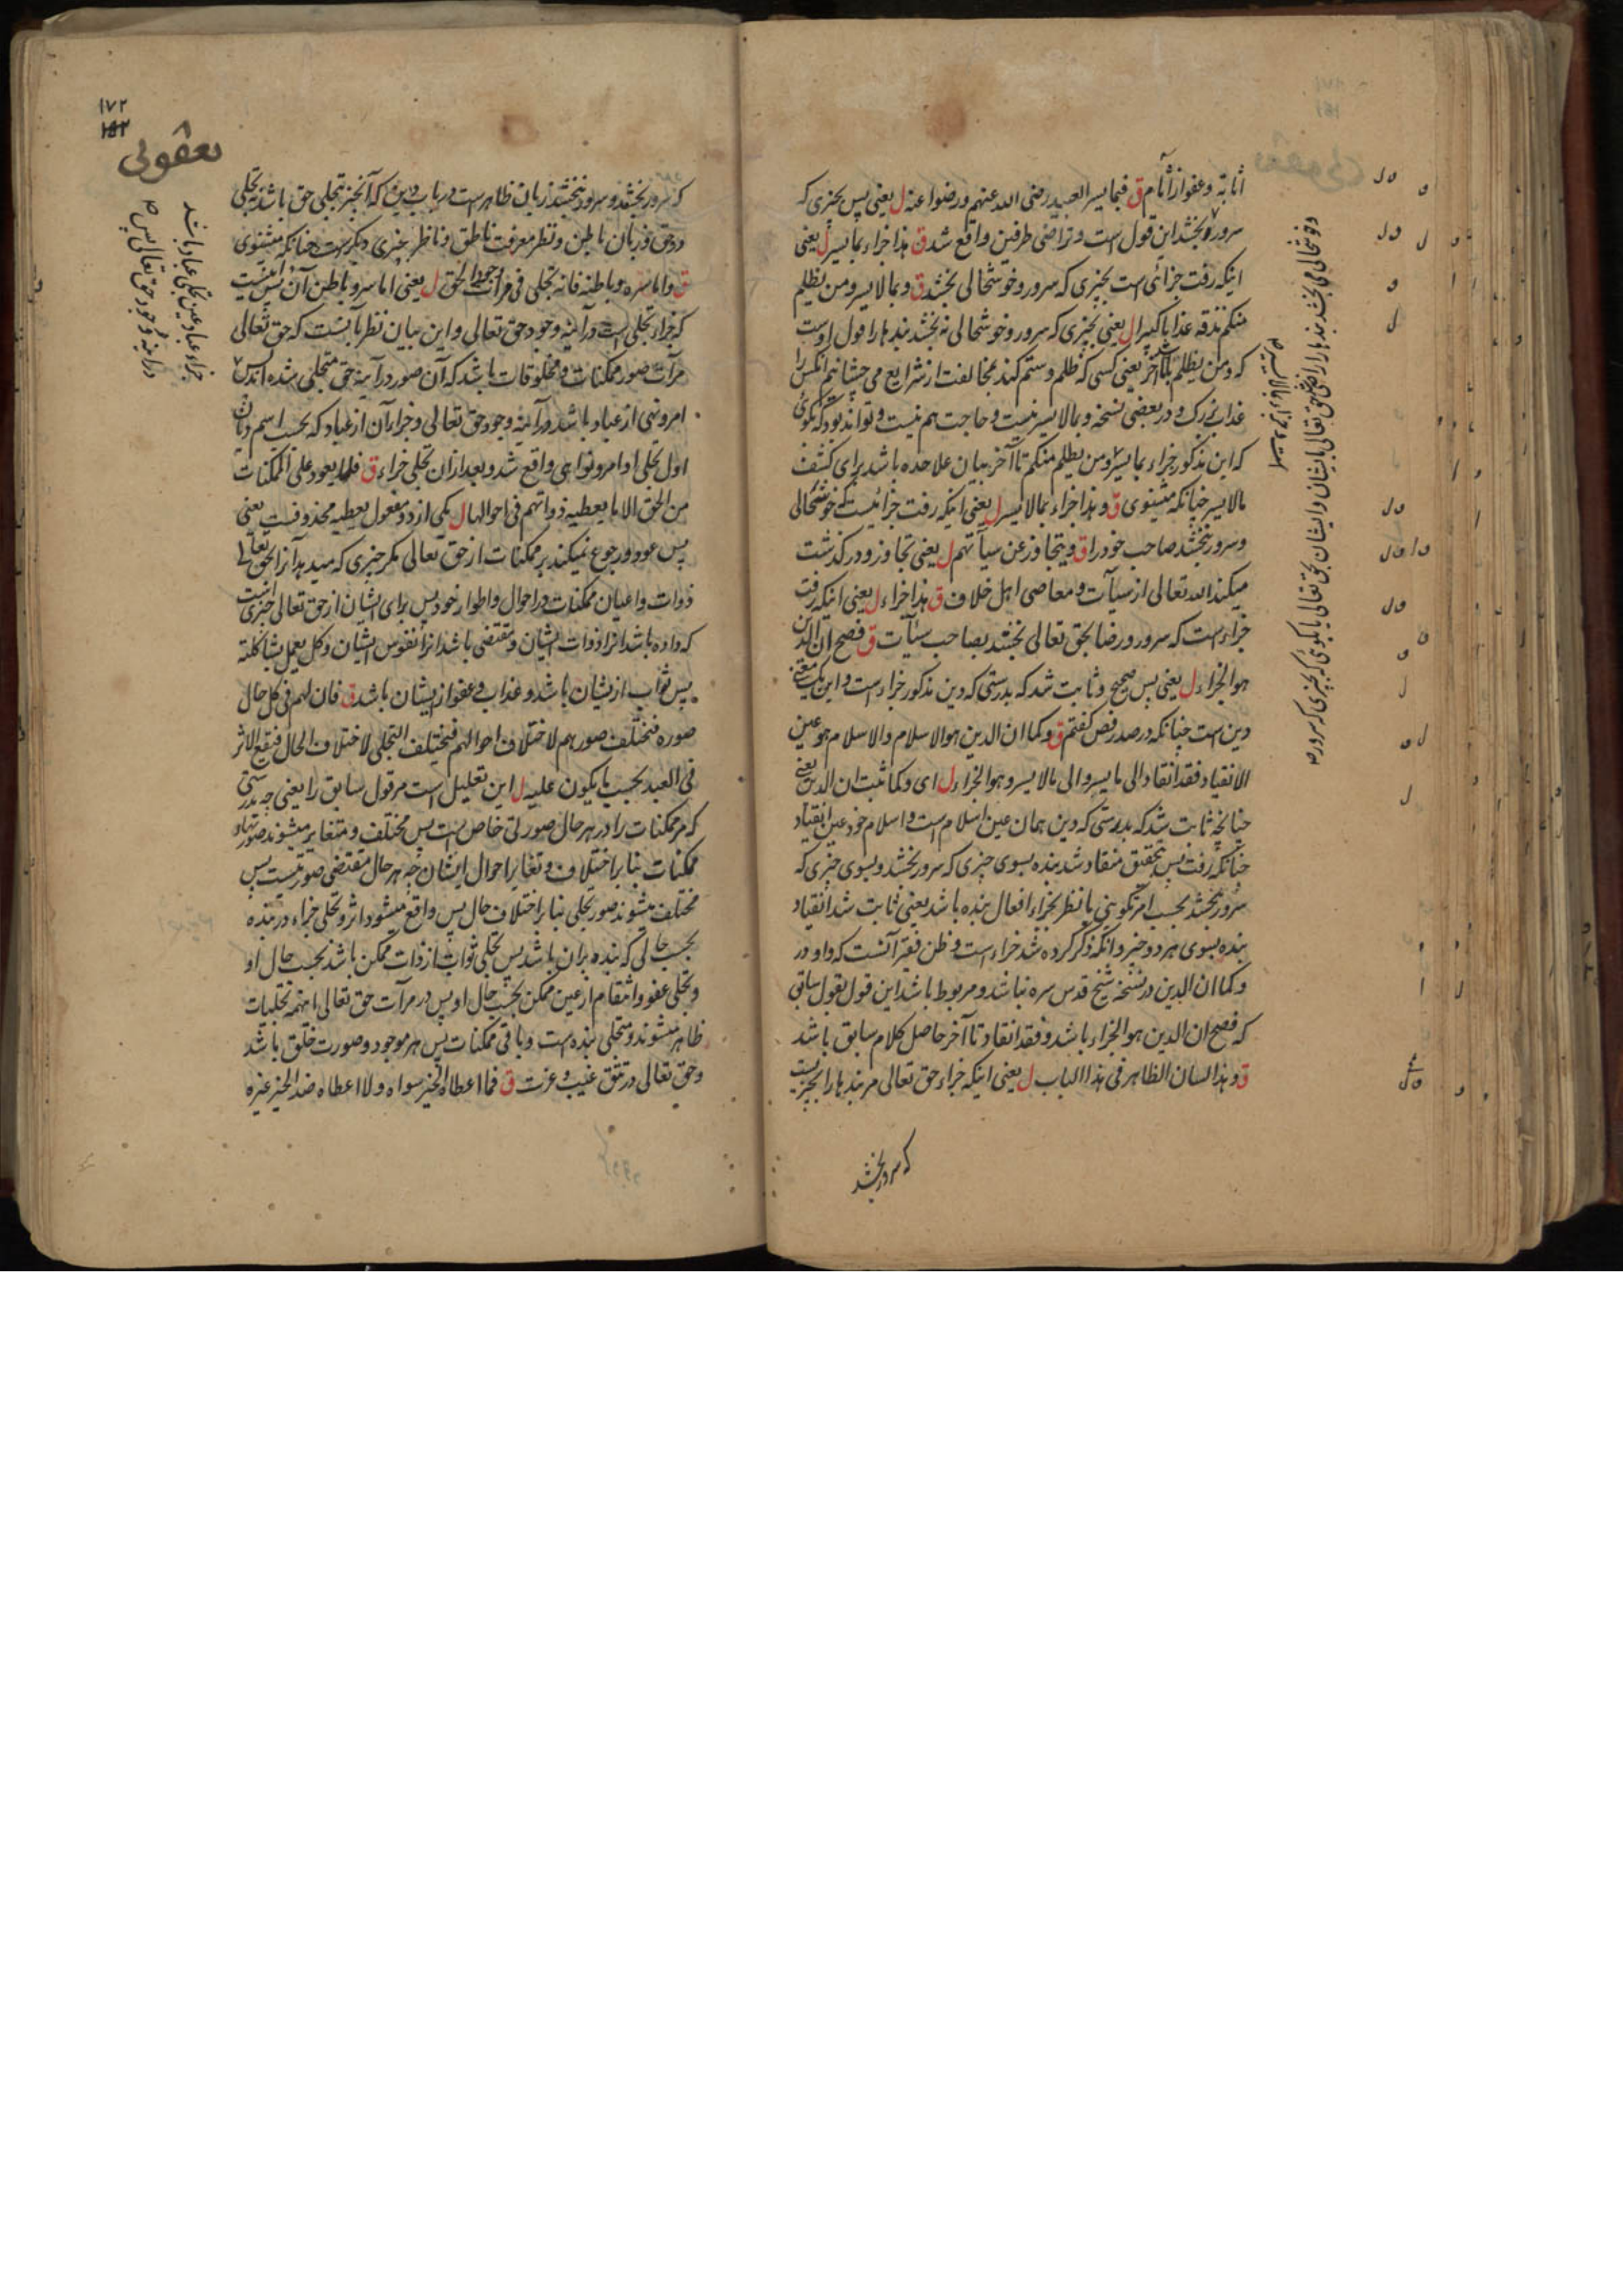 اثابة و عفو از آثام ق فبما یسر العبید رضی الله عنهم و رضوا عنه ل یعنی پس بچیزی که
سرور بخشد این قول است و تراضی طرفین واقع شد ق هذا جزاء بما یسر ل یعنی
اینکه رفت جزائی است بچیزی که سرور و خوشحالی بخشد ق و بما لا یسر و من یظلم
منکم نذقه عذابا کبیرا ل یعنی بچیزی که سرور و خوشحالی نه بخشد بندها را قول اوست
که و من یظلم تا آخر یعنی کسی که ظلم و ستم کند مخالفت از شرایع می چشانیم آنکس را
عذاب بزرک و در بعضی نسخه و بما لا یسر نیست و حاجت هم نیست و تواند بود که بکوئی
که این مذکور جزاء بما یسر و من یظلم منکم تا آخر بیان علاحده باشد برای کشف
ما لا یسر چنانکه مثنوی ق و هذا جزاء بما لا یسر ل یعنی اینکه رفت جزائیست که خوشحالی
و سرور نبخشد صاحب خود را ق و یتجاوز عن سیأتهم ل یعنی تجاوز و درکذشت
میکند الله تعالی از سیآت و معاصی اهل خلاف ق هذا جزاء ل یعنی اینکه رفت
جزاء است که سرور و رضا بحق تعالی بخشد بصاحب سیآت ق فصح ان الدین
هو الجزاء ل یعنی پس صحیح و ثابت شد که بدرستی که دین مذکور جزاء است و این یک معنی
دین است چنانکه در صدر فص کفتم ق و کما ان الدین هو الاسلام و الاسلام هو عین
الانقیاد فقد انقاد الی ما یسر و الی ما لا یسر و هو الجزاء ل ای و کما ثبت ان الدین یعنی
چنانچه ثابت شد که بدرستی که دین همان عین اسلام است و اسلام خود عین انقیاد
چنانکه رفت پس بتحقیق منقاد شد بنده بسوی چیزی که سرور بخشد و بسوی چیزی که
سرور نبخشد بحسب امر تکوینی یا نظر بجزاء افعال بنده باشد یعنی ثابت شد انقیاد
بنده بسوی هر دو چیز و آنکه ذکر کرده شد جزاء است و ظن فقیر آنست که واو در
و کما ان الدین در نسخه شیخ قدس سره نباشد و مربوط باشد این قول بقول سابق
که فصح ان الدین هو الجزاء باشد و فقد انقاد تا آخر حاصل کلام سابق باشد
ق و هذا لسان الظاهر فی هذا الباب ل یعنی اینکه جزاء حق تعالی مر بندها را بچیزیست
که سرور بخشد
۱۷۲
یعقوبی
که سرور بخشد و سرور نبخشد زبان ظاهر است در باب دین که آنچیز تجلی حق باشد تجلی
در حق و زبان باطن و نظر معرفت ناطق و ناظر بچیزی دیکر است چنانکه مثنوی
ق و اما سره و باطنه فانه تجلی فی مرآت وجود الحق ل یعنی اما سر و باطن آن پس اینست
که جزاء تجلی است در آینه وجود حق تعالی و این بیان نظر بآنست که حق تعالی
مرآت صور ممکنات و مخلوقات باشد که آن صور در آینه حق متجلی شده اند پس
امر و نهی از عباد باشد در آینه وجود حق تعالی و جزاء آن از عباد که بحسب اسم دیان
اول تجلی او امر و نواهی واقع شد و بعد ازان تجلی جزاء ق فلا یعود علی الممکنات
من الحق الا ما یعطیه ذواتهم فی احوالها ل یکی از دو مفعول یعطیه محذوفست یعنی
پس عود و رجوع نمیکند بر ممکنات از حق تعالی مکر چیزی که میدهد آنرا بحق تعالی
ذوات و اعیان ممکنات در احوال و اطوار خود پس برای ایشان از حق تعالی چیزی است
که داده باشد انرا ذوات ایشان و مقتضی باشد انرا نفوس ایشان و کل یعمل بشاکلته
پس ثواب از یشان باشد و عذاب و عفو از یشان باشد ق فان لهم فی کل حال
صوره فتختلف صورهم لاختلاف احوالهم فیختلف التجلی لاختلاف الحال فیقع الاثر
فی العبد بحسب ما یکون علیه ل این تعلیل است مر قول سابق را یعنی چه بدرستی
که مر ممکنات را در هر حال صورتی خاص است پس مختلف و متغایر میشوند صورتهاء
ممکنات بنا بر اختلاف و تغایر احوال ایشان چه هر حال مقتضی صورتیست پس
مختلف میشوند صور تجلی بنا بر اختلاف حال پس واقع میشود اثر و تجلی جزاء در بنده
بحسب حالی که بنده بران باشد پس تجلی ثواب از ذات ممکن باشد بحسب حال او
و تجلی عفو و انتقام از عین ممکن بحسب حال او پس در مرآت حق تعالی اینهمه تجلیات
ظاهر میشوند و متجلی بنده است و باقی ممکنات پس هر موجود و صورت خلق باشد
و حق تعالی در تتق غیب و عزت ق فما اعطاه الخیر سواه و لا اعطاه ضد الخیر غیره
جزاء عباد عین تجلی عباد باشد
در آینه وجود حق تعالی پس